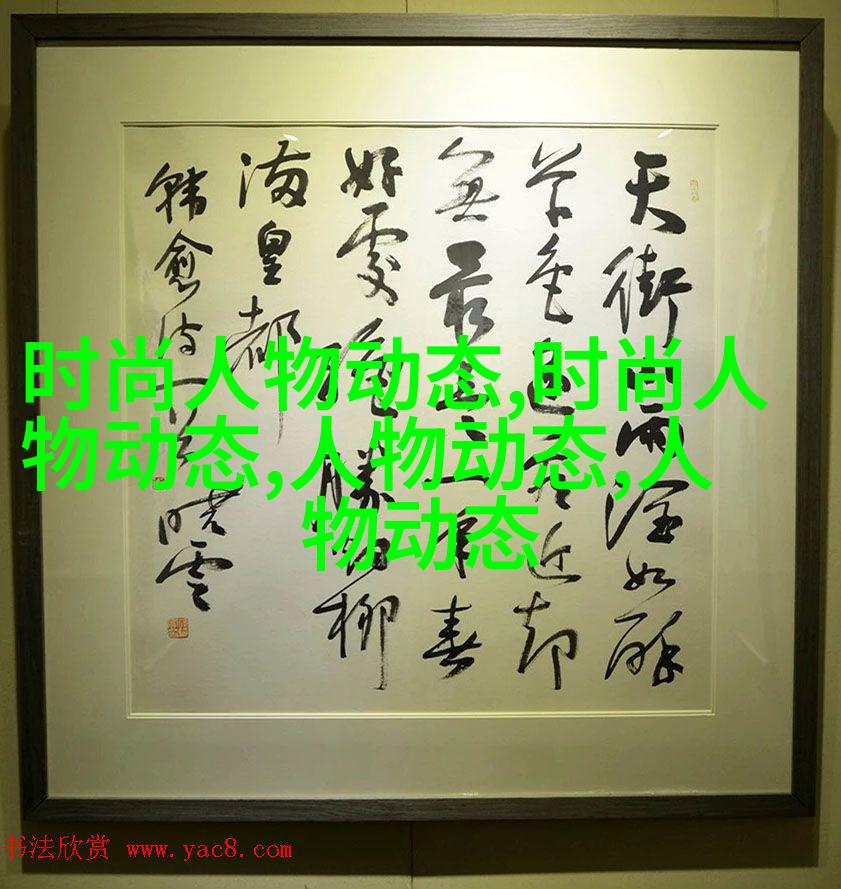 天街小雨潤如酥
草色遥看近却
無最是一年春
好處絕勝烟柳
满皇都
韓愈诗一首 晓雲
时尚人物动态,时尚人
物动态,人物动态,人
物动态
书法欣赏 www.yac8.com